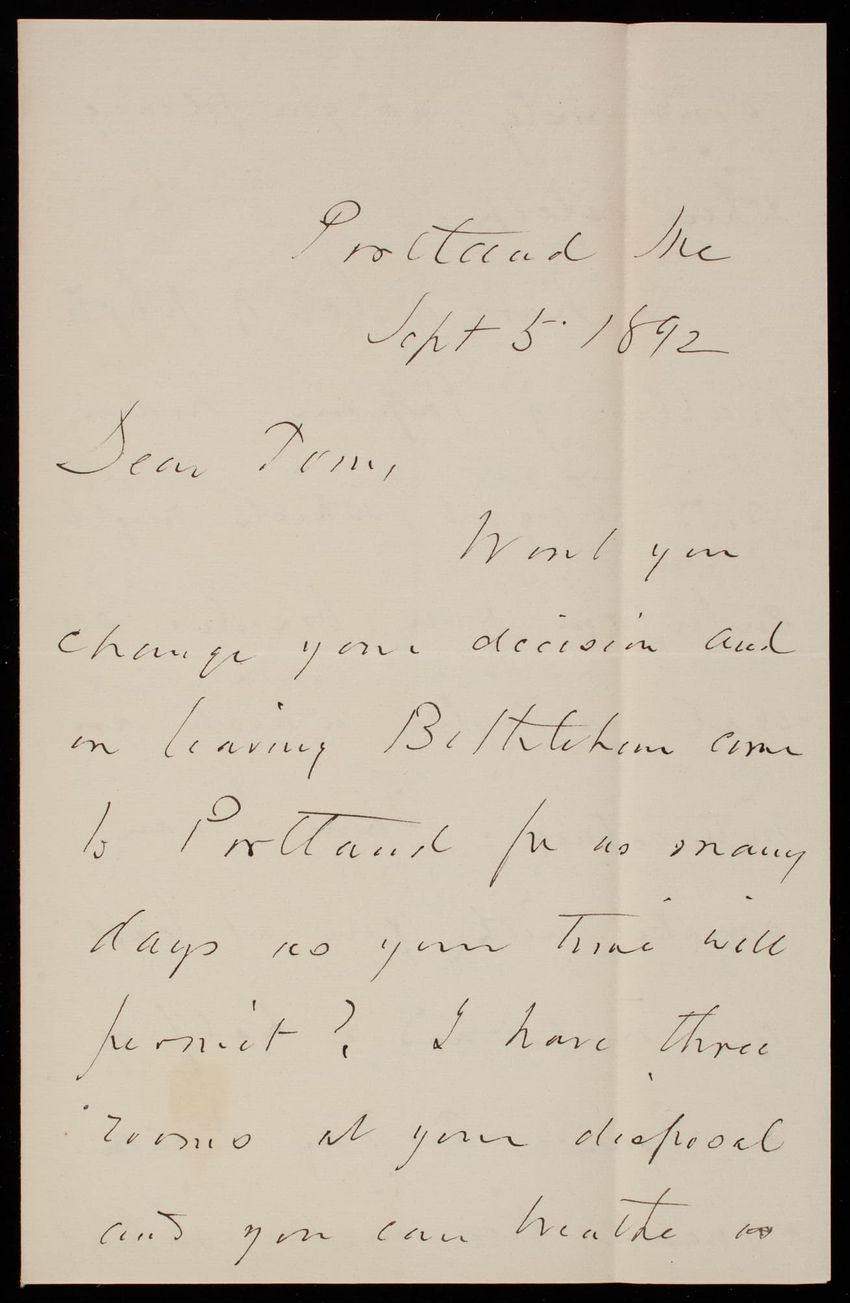 Portland Me
Sept 5. 1892
Dear Tom,
Wont you
change your decision and
on leaving Bethlehem come
to Portland for as many
days as your time will
permit? I have three
rooms at your disposal
and you can breathe as